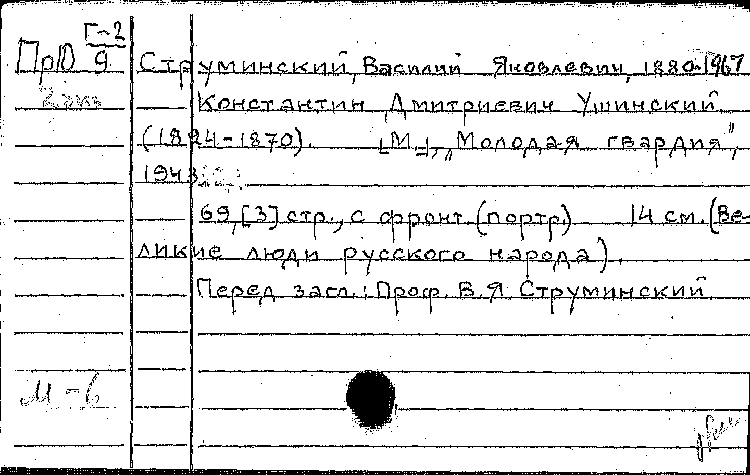 Г-2
ПрЮ 9 Струминский, Василий Яковлевич, 1880-1967
2 экз
Константин Дмитриевич Ушинский
(1824-1870). [М.], „Молодая гвардия",
1943
69,[3] стр., с фронт.(портр) 14 см.(Ве-
ликие люди русского народа).
Перед загл.: Проф. В.Я. Струминский
М-6